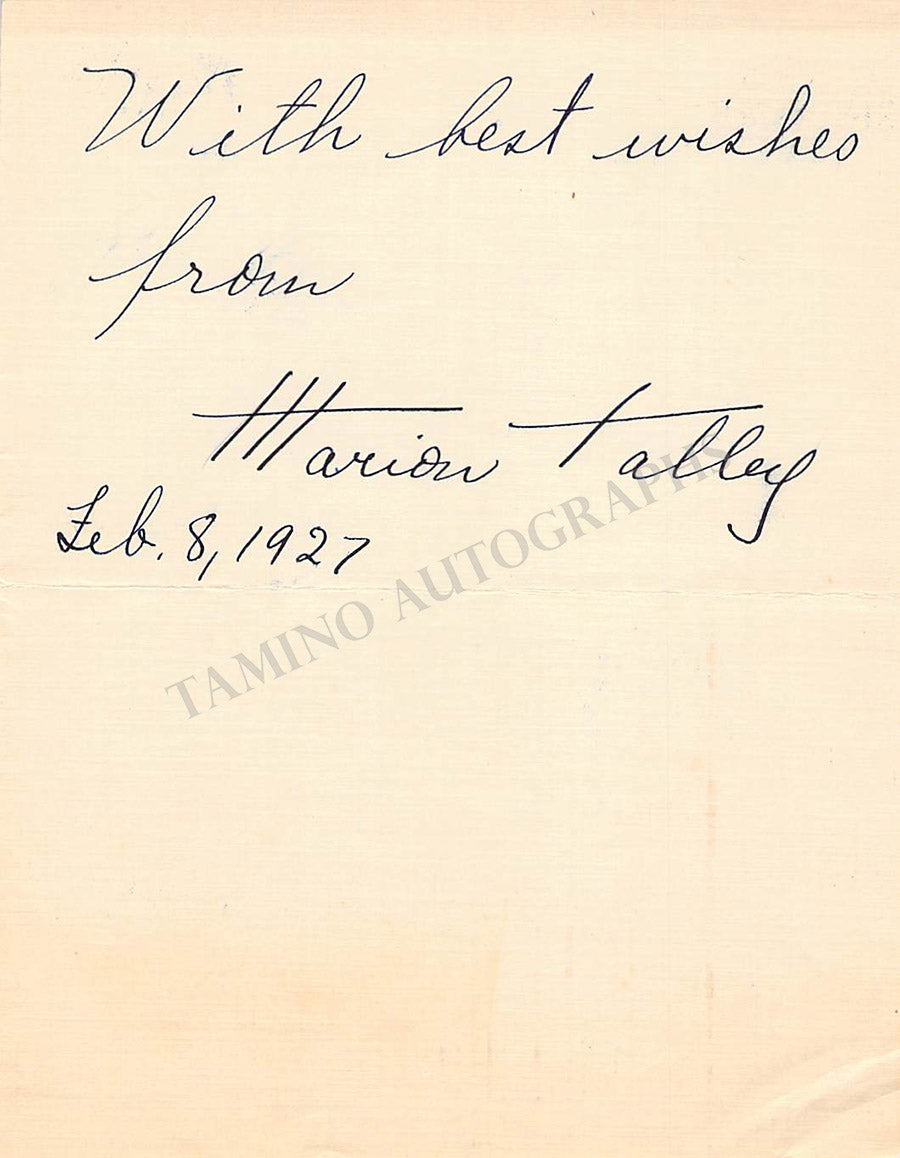 With best wishes
from
Marion Talley
Feb. 8, 1927
TAMINO AUTOGRAPHS